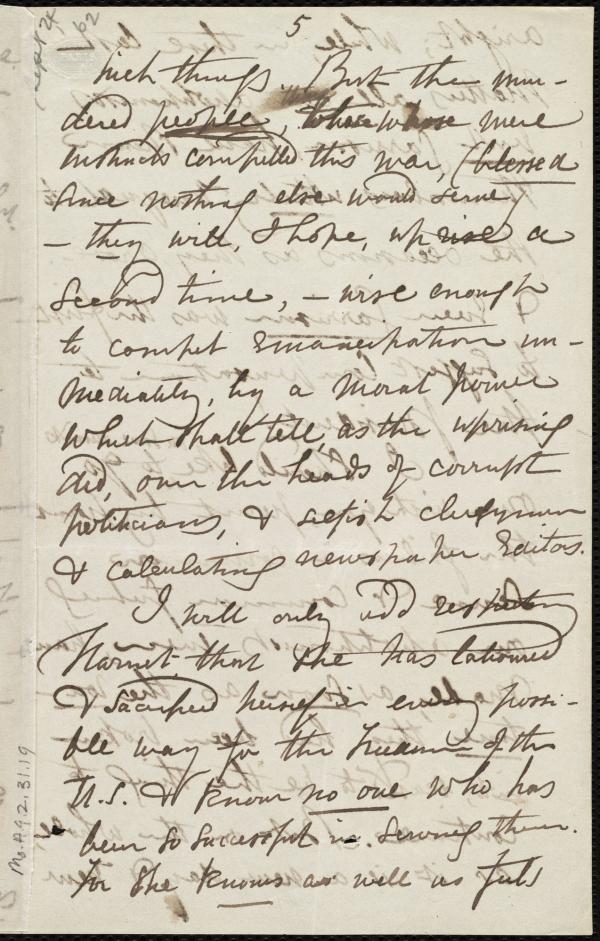 5
Sept 24 / 62
such things. But the mur-
dered people, those whose mere
instincts compelled this war, (blessed
since nothing else would serve)
– they will, I hope, uprise a
second time, – wise enough
to compel Emancipation im-
mediately, by a moral power
which shall tell, as the uprising
did, over the heads of corrupt
politicians, & selfish clergymen
& calculating newspaper Editors.
I will only add respecting
Harriet that she has labored
& sacrificed herself in every possi-
ble way for the Freedom of the
U.S. & I know no one who has
been so successful in serving them.
for she knows as well as feels
Ms.A.9.2.31.19